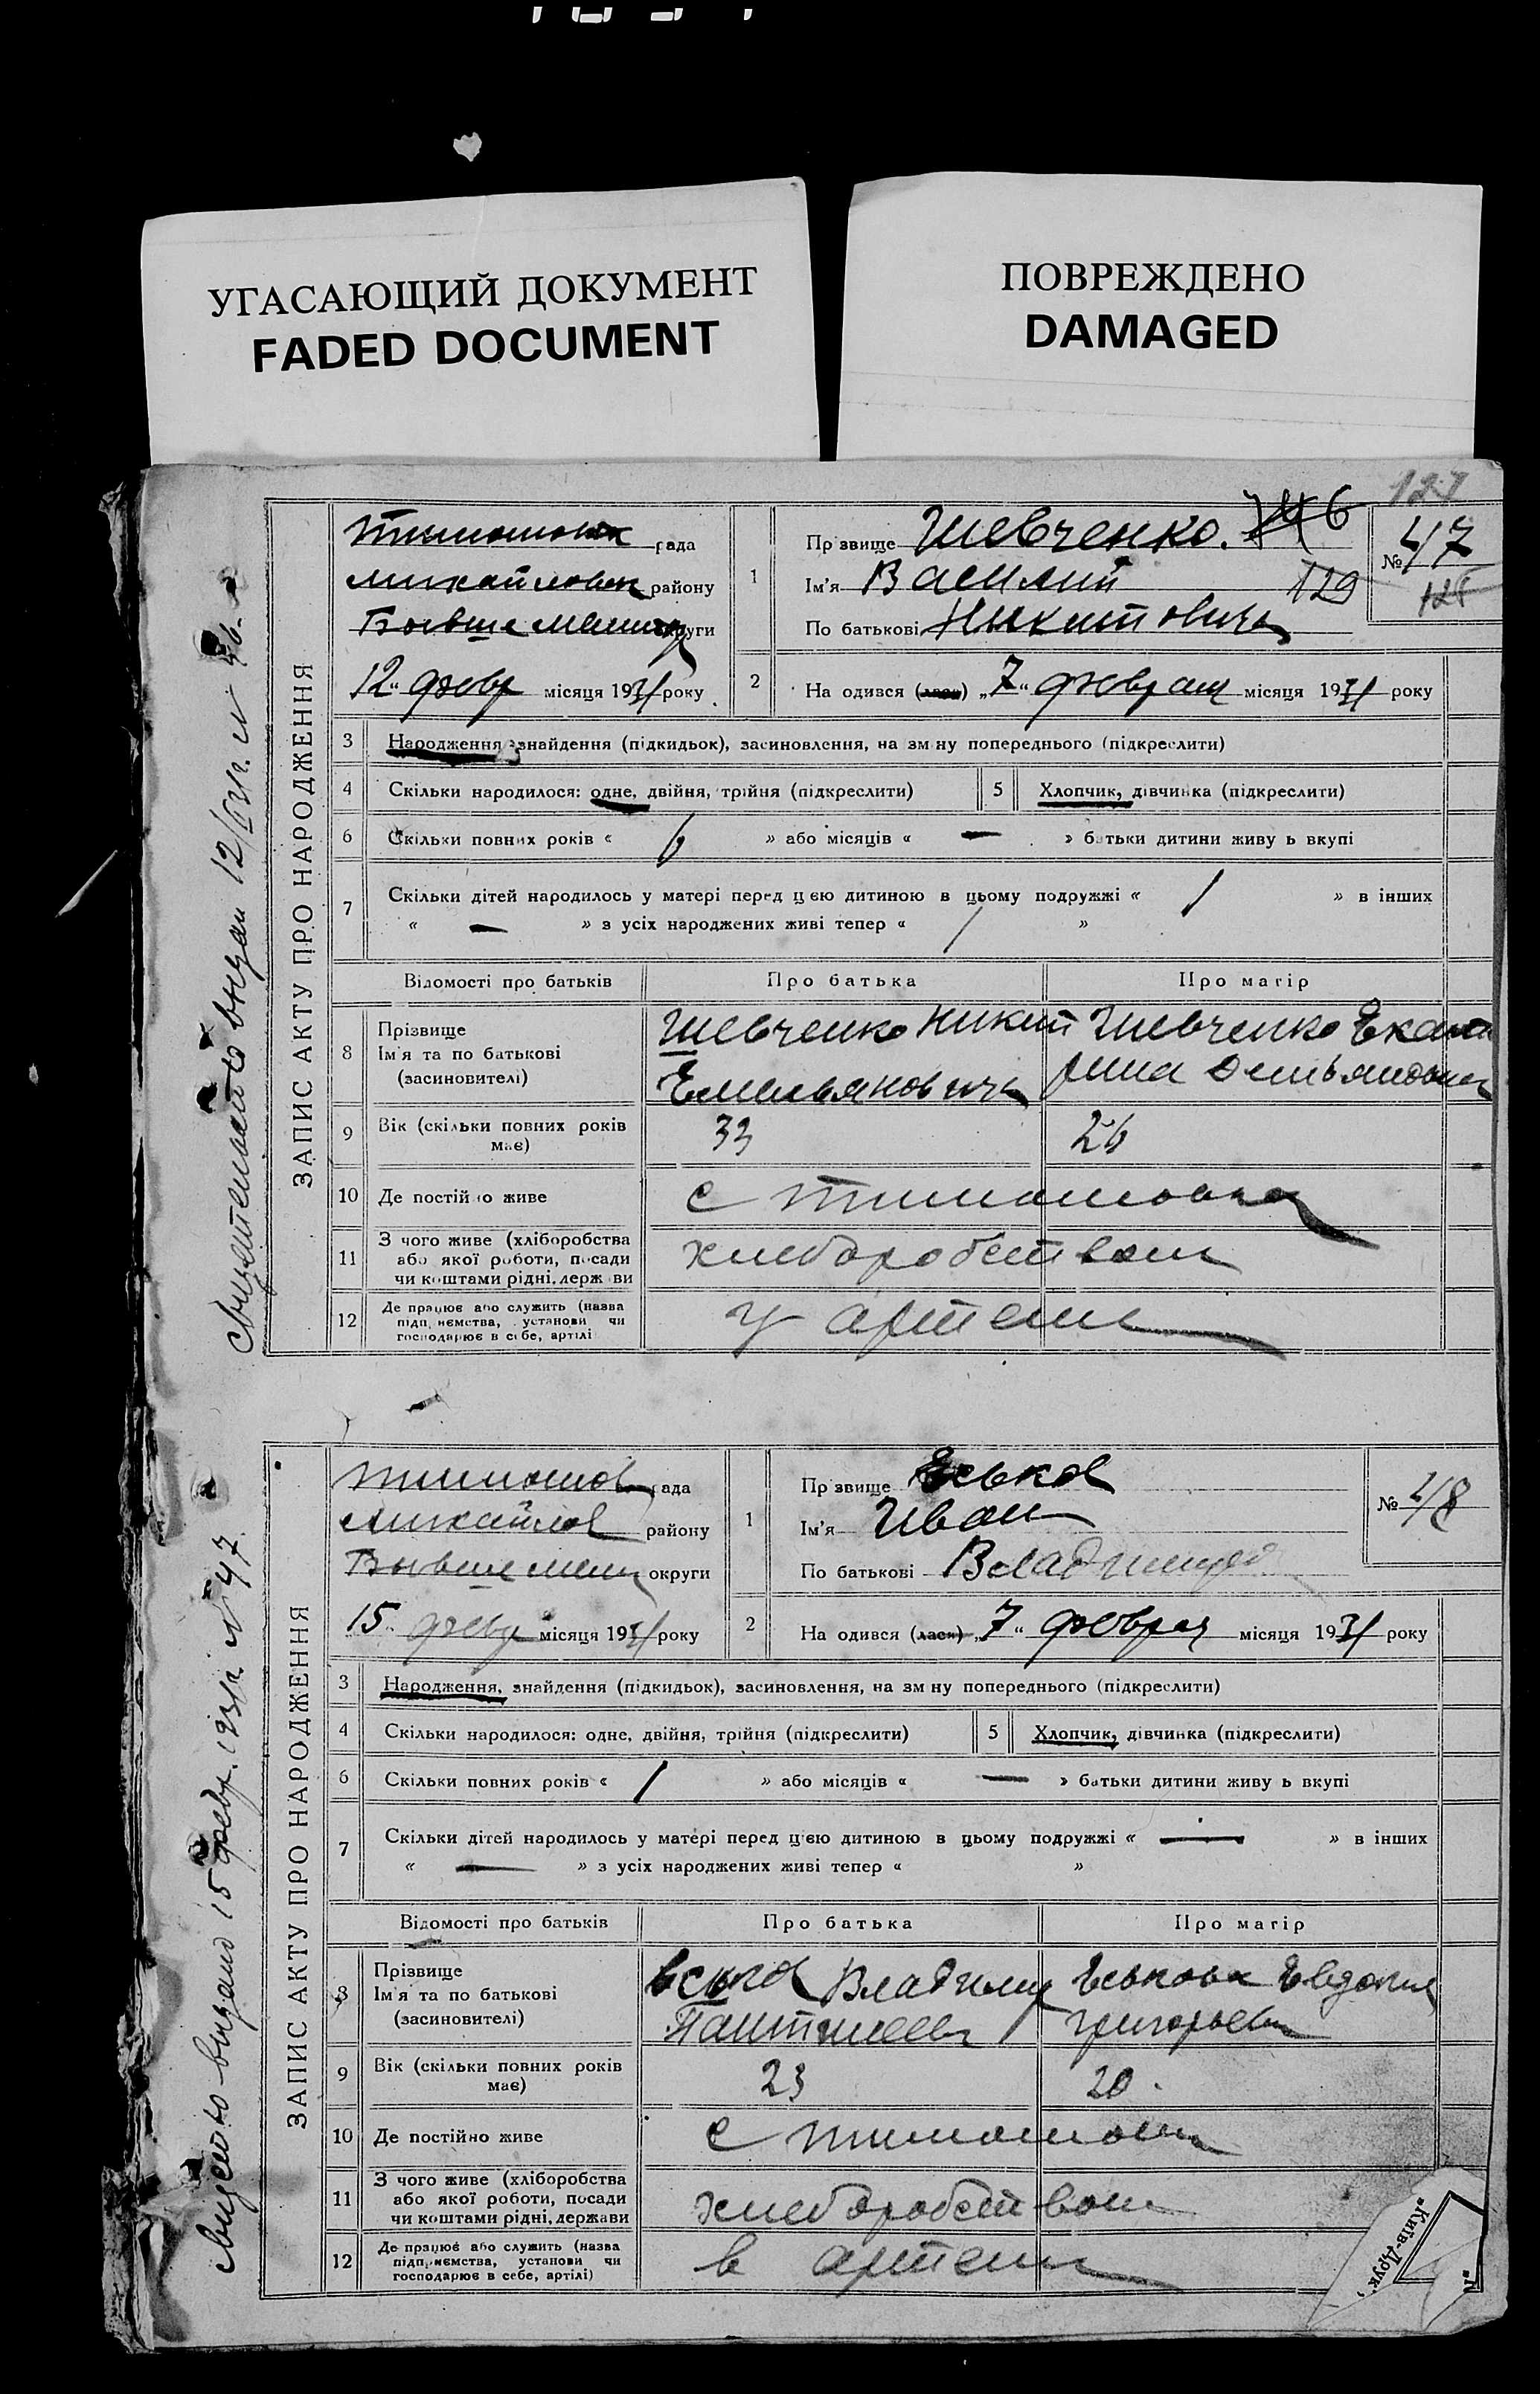 УГАСАЮЩИЙ ДОКУМЕНТ
FADED DOCUMENT
ПОВРЕЖДЕНО
DAMAGED
127
ЗАПИС АКТУ ПРО НАРОДЖЕННЯ
рада
району
Бывше округи
12 февр місяця 1931 року
1
Пр звище Шевченко.
Ім'я Василий 129
По батькові Никитович
№ 47
2 На одився (лась) „7“ февраля місяця 1931 року
3 Народження, знайдення (підкидьок), засиновлення, на зм ну попереднього (підкреслити)
4 Скільки народилося: одне, двійня, трійня (підкреслити) 5 Хлопчик, дівчинка (підкреслити)
6 Скільки повних років « 6 » або місяців « — » батьки дитини живу ь вкупі
7 Скільки дітей народилось у матері перед цією дитиною в цьому подружжі « 1 » в інших
« — » з усіх народжених живі тепер « 1 »
Відомості про батьків Про батька Про матір
8 Прізвище
Ім'я та по батькові
(засиновителі)
Шевченко Никит
Емельянович
Шевченко Екате
рина Демьяновна
9 Вік (скільки повних років має) 33 26
10 Де постійно живе с Тимошовка
11 З чого живе (хліборобства
або якої роботи, посади
чи коштами рідні, держ ви
хлеборобством
12 Де працює або служить (назва
підприємства, установи чи
господарює в себе, артілі
у артели
Свидетельство выдан 12/II 31 г. № 46
ЗАПИС АКТУ ПРО НАРОДЖЕННЯ
Тимошов рада
Михайлов району
Бывше округи
15 февр місяця 1931 року
1
Пр звище Еськов
Ім'я Иван
По батькові Владимир
№ 48
2 На одився (лася) „7“ февраля місяця 1931 року
3 Народження, знайдення (підкидьок), засиновлення, на зм ну попереднього (підкреслити)
4 Скільки народилося: одне, двійня, трійня (підкреслити) 5 Хлопчик, дівчинка (підкреслити)
6 Скільки повних років « 1 » або місяців « — » батьки дитини живу ь вкупі
7 Скільки дітей народилось у матері перед цією дитиною в цьому подружжі « — » в інших
« — » з усіх народжених живі тепер « »
Відомості про батьків Про батька Про матір
8 Прізвище
Ім'я та по батькові
(засиновителі)
Еськов Владимир
Еськова Евдокия
Григорьевн
9 Вік (скільки повних років має) 23 20
10 Де постійно живе с Тимошовка
11 З чого живе (хліборобства
або якої роботи, посади
чи коштами рідні, держави
хлеборобством
12 Де працює або служить (назва
підприємства, установи чи
господарює в себе, артілі)
в артели
выдано 15 февр. 1931 г. № 47
„Київ-Друк“,